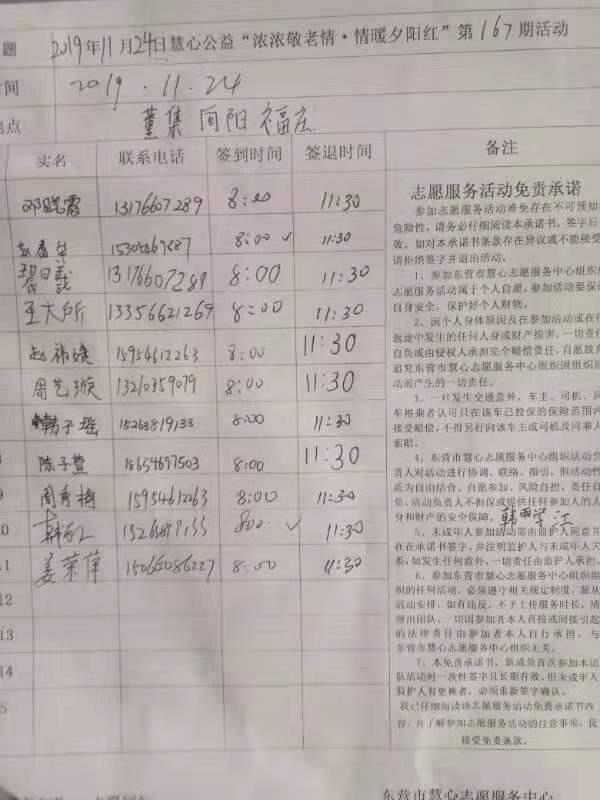 题 2019年11月24日慧心公益“浓浓敬老情·情暖夕阳红”第167期活动
时间 2019.11.24
地点 董集 向阳 福庄
实名 联系电话 签到时间 签退时间 备注
邓晓霞 13176607289 8:00 11:30
8:00 11:30
13176607289 8:00 11:30
王大所 13356621269 8:00 11:30
赵祎婕 15954612263 8:00 11:30
周艺璇 13210359079 8:00 11:30
8 韩子瑶 15263819133 8:00 11:30
陈子萱 18654697503 8:00 11:30
9 周秀梅 15954612263 8:00 11:30
0 8:00 11:30
1 姜荣萍 15066086227 8:00 11:30
12
13
14
5
志愿服务活动免责承诺
参加志愿服务活动难免存在不可预知
危险性,请务必仔细阅读本承诺书,签字后
效。如对本承诺书条款存在异议或不能接受
请拒绝签字并退出活动。
1、参加东营市慧心志愿服务中心组织
志愿服务活动属于个人自愿,参加活动要保
自身安全,保护好个人财物。
2、因个人身体原因及在参加活动或在往
返途中发生的任何人身或财产损害,一切责任
自负或由侵权人承担完全赔偿责任,自愿放弃
追究东营市慧心志愿服务中心组织因组织
动而产生的一切责任。
3、一旦发生交通意外,车主、司机、同
车搭乘者认可只在该车已投保的保险范围内
接受赔偿,不得另行向该车主或司机及同乘人
索赔。
4、东营市慧心志愿服务中心组织活动负
责人对活动进行协调、联络、指引,但活动性
质为自由结合、自愿参加、风险自担、责任自
负,活动负责人不担保或提供任何参加人的人
身和财产的安全保障。
5、未成年人参加活动需由监护人同意并
在在承诺书签字,并注明监护人与未成年人关
系,如发生任何意外,一切责任由监护人承担。
6、参加东营市慧心志愿服务中心组织组
织的任何活动,必须遵守相关规定制度,服从
活动安排。如有违反,不予上传服务时长,清
理出团队。一切因参加者本人直接或间接引起
的法律责任由参加者本人自行承担,与
东营市慧心志愿服务中心组织无关。
7、本免责承诺书,新成员首次参加本团
队活动时一次性签字且长期有效。但未成年人
监护人有更换者,必须重新签字确认。
我已仔细阅读该志愿服务活动免责承诺书内
容,并了解参加志愿服务活动的注意事项,我
接受免责条款。
东营市慧心志愿服务中心